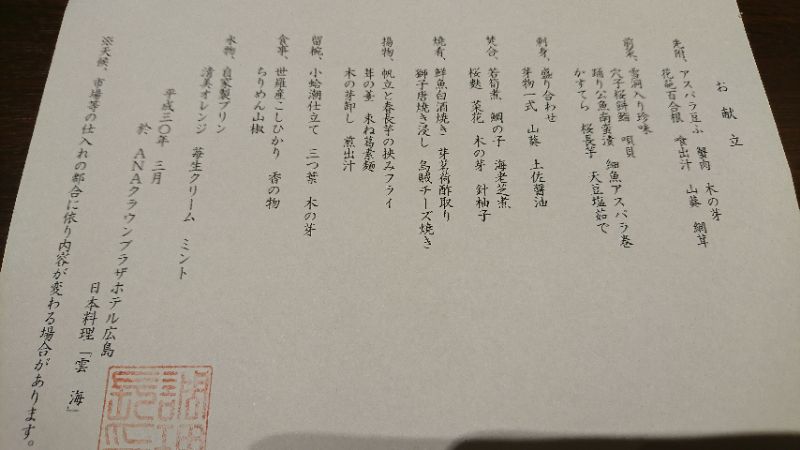 お献立
先附、アスパラ豆ふ 蟹肉 木の芽
花弁百合根 食出汁 山葵 網茸
前菜、雪洞入り珍味
穴子桜餅鮨 唄貝 細魚アスパラ巻
踊り公魚南蛮漬 桜長芋 天豆塩茹で
かすてら
刺身、盛り合わせ
芽物一式 山葵 土佐醤油
焚合、若筍煮 鯛の子 海老芝煮
桜麩 菜花 木の芽 針柚子
焼肴、鮮魚白酒焼き 芽茗荷酢取り
獅子唐焼き浸し 烏賊チーズ焼き
揚物、帆立と春長芋の挟みフライ
蕗の薹 束ね葛素麺
木の芽卸し 煎出汁
留椀、小蛤潮仕立て 三つ葉 木の芽
食事、世羅産こしひかり 香の物
ちりめん山椒
水物、自家製プリン
清美オレンジ 苺生クリーム ミント
平成三〇年 三月
於 ANAクラウンプラザホテル広島
日本料理「雲海」
※天候、市場等の仕入れの都合に依り内容が変わる場合があります。